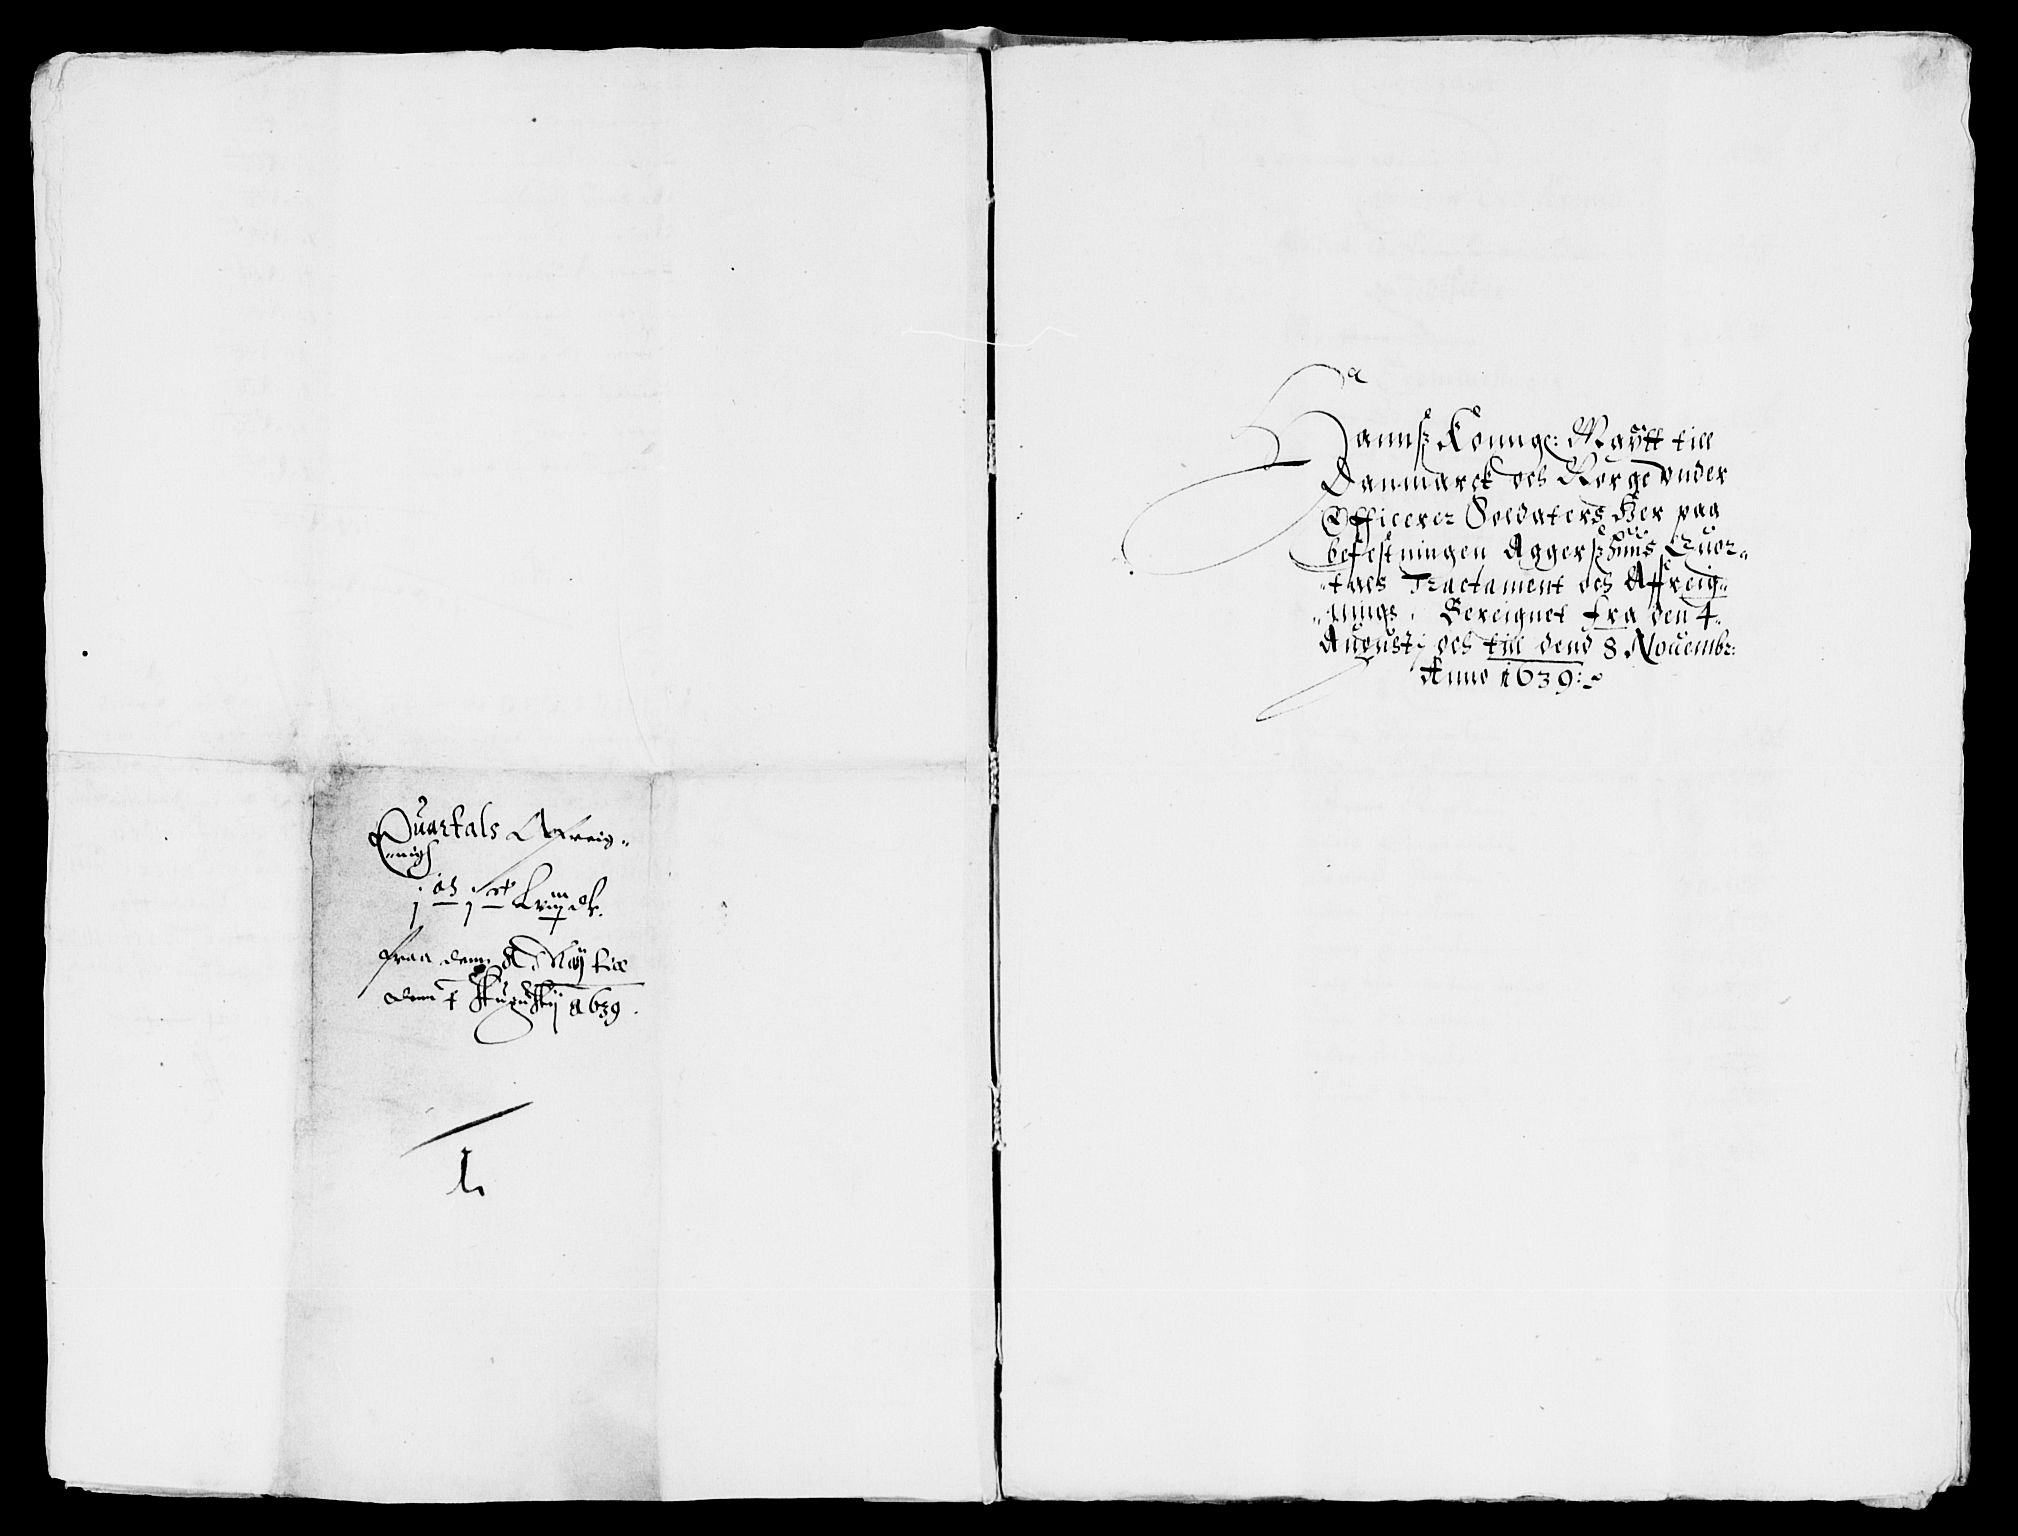 Quartals Affreig-
-nigs
fraa dem 8 Maij till
dem 4 Augustij 1639.
L
Hannsz Konnge: Maÿtt till
Danmarck och Norge vnder
Officerer Soldaters Her paa
befestningen Aggerszhuus Quor-
-tals Tractament och Affreig-
-nings, Bereignet fra den 4.
Augustj och till dend 8 Nouembr:
Anno 1639: